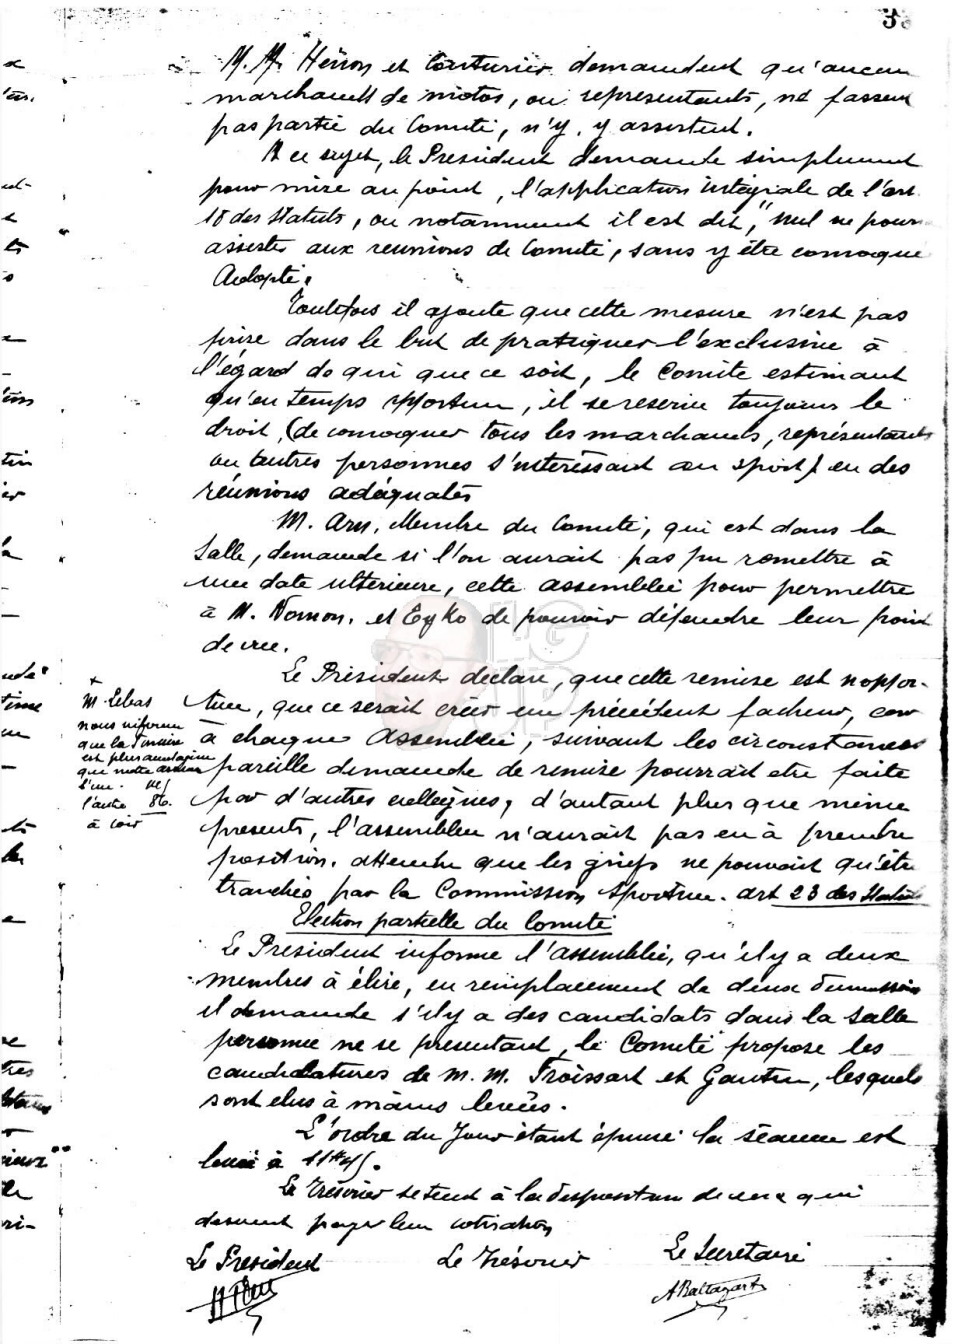 M. M. Héron et Couturier demandent qu'aucun
marchands de motos, ou représentants, ne fassent
pas partie du Comité, n'y, y assistent.
A ce sujet, le President demande simplement
pour mise au point, l'application intégrale de l'art.
18 des Statuts, ou notamment il est dit, "nul ne pourra
assister aux reunions de Comité, sans y être convoqué
Adopté.
Toutefois il ajoute que cette mesure n'est pas
prise dans le but de pratiquer l'exclusive à
l'égard de qui que ce soit, le Comité estimant
qu'en temps opportun, il se reserve toujours le
droit, (de convoquer tous les marchands, représentants
ou autres personnes s'intéressant au sport) en des
réunions adéquates
M. Ars, Membre du Comité, qui est dans la
Salle, demande si l'on aurait pas pu remettre à
une date ultérieure, cette assemblée pour permettre
à M. et Eyko de pouvoir défendre leur point
de vue.
Le Président declare, que cette remise est inoppor-
tune, que ce serait créer un précédent facheux, car
à chaque Assemblée, suivant les circonstances
pareille demande de remise pourrait etre faite
par d'autres collègues, d'autant plus que même
presents, l'assemblée n'aurait pas eu à prendre
position. attendu que les griefs ne pouvait qu'être
tranchés par la Commission Sportive. art 23 des Statuts
M. Lebas
nous informe
que la
est plus
que notre
l'un.
l'autre 86.
à voir
Election partielle du Comité
Le President informe l'assemblée, qu'il y a deux
membres à élire, en remplacement de deux
il demande s'il y a des candidats dans la salle
personne ne se presentant, le Comité propose les
candidatures de M. M. Froissart et Gantin, lesquels
sont élus à mains levées.
L'ordre du Jour étant épuisé la séance est
levée à 11H45.
Le Trésorier se tient à la disposition de ceux qui
desirent payer leur cotisation
Le President Le Trésorier Le Secretaire
A Baltazart